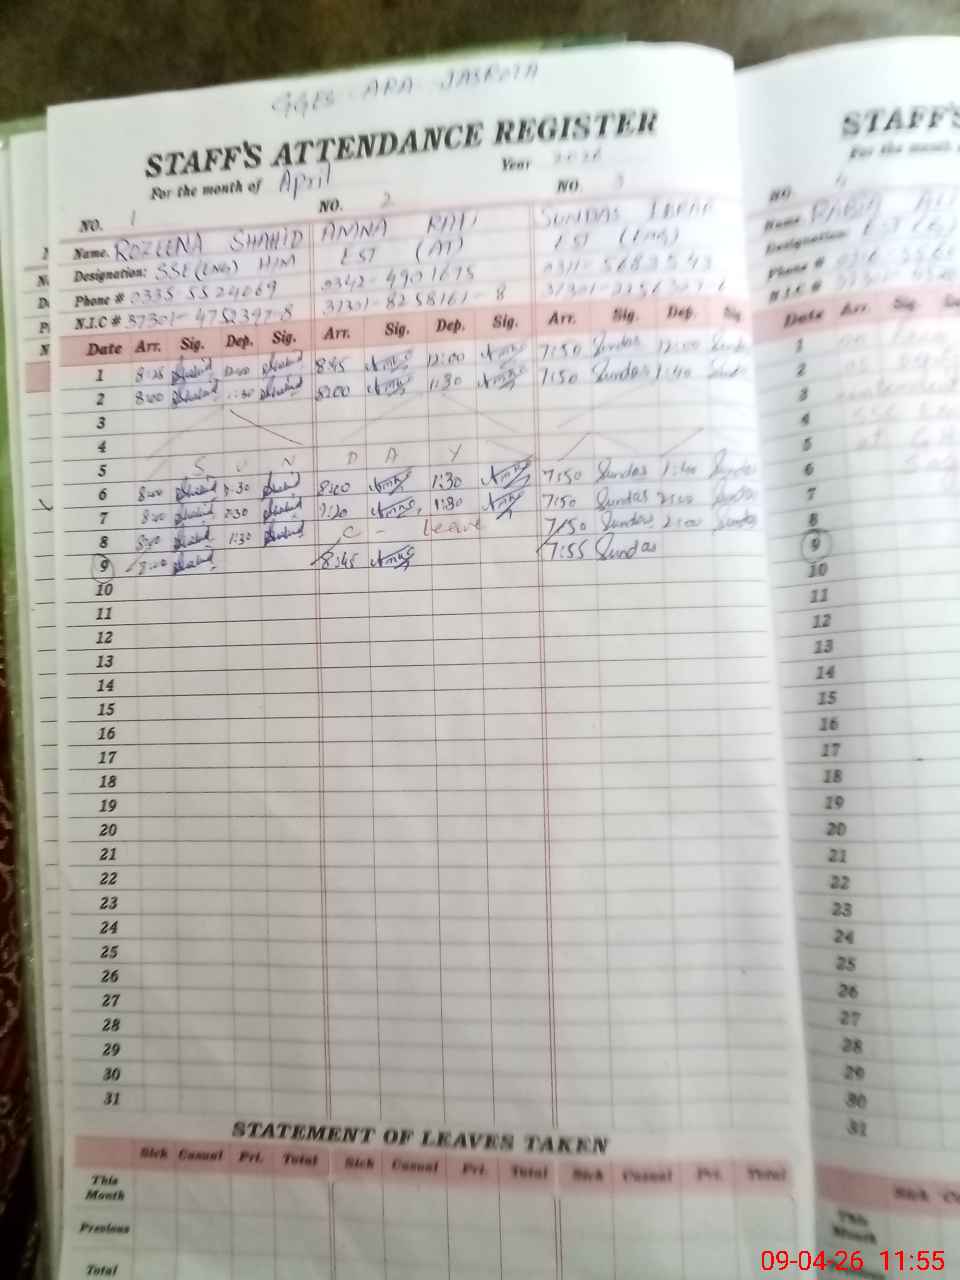 GGES ARA JASROTA
STAFF'S ATTENDANCE REGISTER
For the month of April Year 2026
NO. 1 NO. 2 NO. 3
Name. ROZEENA SHAHID AMNA SUNDAS
Designation: SSE (ENG) H/M EST (AT) EST (Eng)
Phone # 0335 5524069 0342-4901675 0311-5683543
N.I.C # 37301-4752397-8 37301-8258161-8
Date Arr. Sig. Dep. Sig. Arr. Sig. Dep. Sig. Arr. Sig. Dep. Sig.
1 8:25 Shahid Shahid 8:45 Amna 12:00 Amna 7:50 Sundas 12:00 Sundas
2 8:00 Shahid 1:30 Shahid 8:00 Amna 1:30 Amna 7:50 Sundas 1:40 Sundas
3
4
5 S U N D A Y
6 8:00 Shahid 1:30 Shahid 8:00 Amna 1:30 Amna 7:50 Sundas 1:40 Sundas
7 8:00 Shahid 1:30 Shahid Amna 1:30 Amna 7:50 Sundas 2:00 Sundas
8 8:00 Shahid 1:30 Shahid C - Leave 7:50 Sundas 2:00 Sundas
9 8:00 Shahid 8:45 Amna 7:55 Sundas
10
11
12
13
14
15
16
17
18
19
20
21
22
23
24
25
26
27
28
29
30
31
STATEMENT OF LEAVES TAKEN
Sick Casual Pri. Total Sick Casual Pri. Total Sick Casual Pri. Total
This Month
Previous
Total
STAFF'S
For the month
NO. 4
Name. RABIA
Designation: EST (E
Phone #
N.I.C #
Date Arr. Sig.
1
2
3
4
5
6
7
8
9
10
11
12
13
14
15
16
17
18
19
20
21
22
23
24
25
26
27
28
29
30
31
Sick
This Month
Previous
09-04-26 11:55